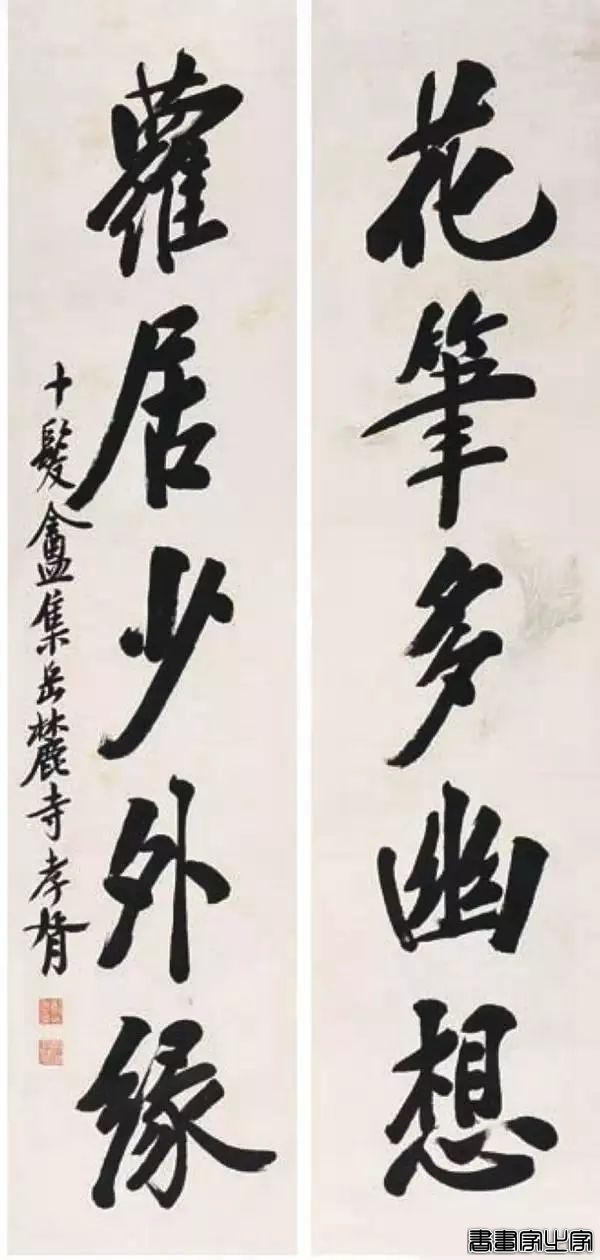 花筆多幽想
蘿居少外緣
十髮盦集岳麓寺孝胥
書畫家必字